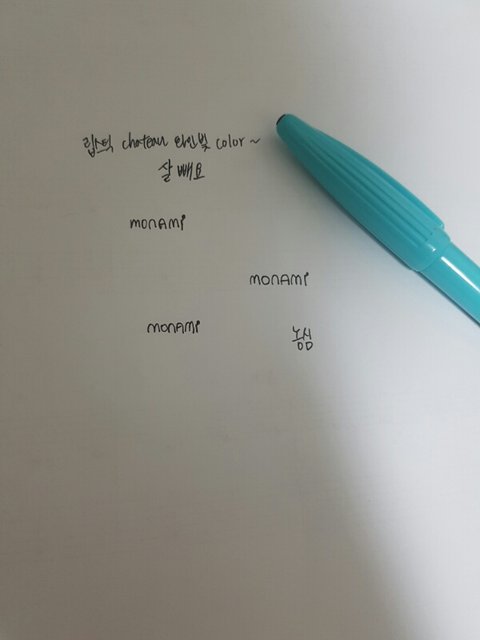 립스틱 chateau 와인빛 color ~
살 빼요
monAmi
monAmi
monAmi
농심